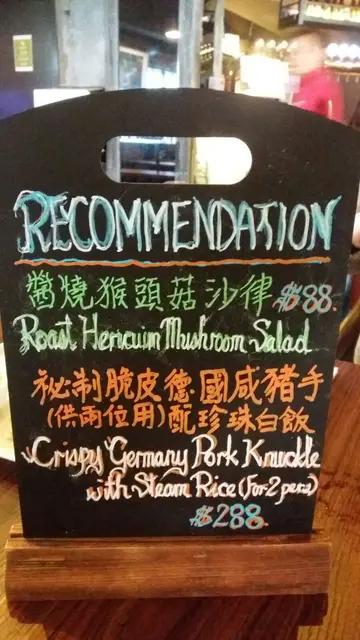 RECOMMENDATION
醬燒猴頭菇沙律 $88.
Roast Hericuim Mushroom Salad
祕制脆皮德國咸豬手
(供兩位用)配珍珠白飯
Crispy Germany Pork Knuckle
with Steam Rice (For 2 pers)
$288.